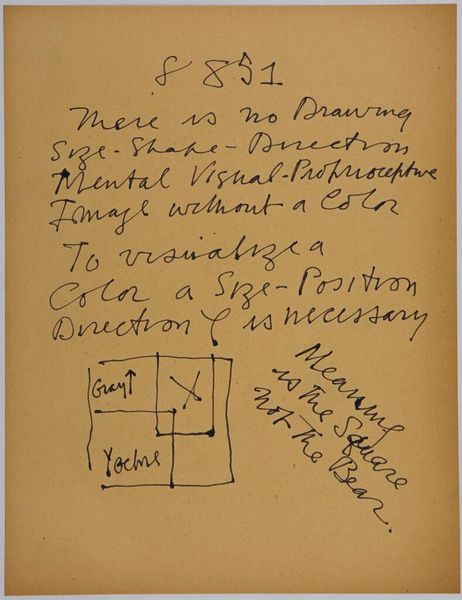 8 851
There is no Drawing
Size-Shape-Direction
Mental Visual-Proprioceptive
Image without a Color
To visualize a
Color a Size-Position
Direction is necessary
Gray↑
X
Y Ochre
Meaning
is The Square
not The Bear.